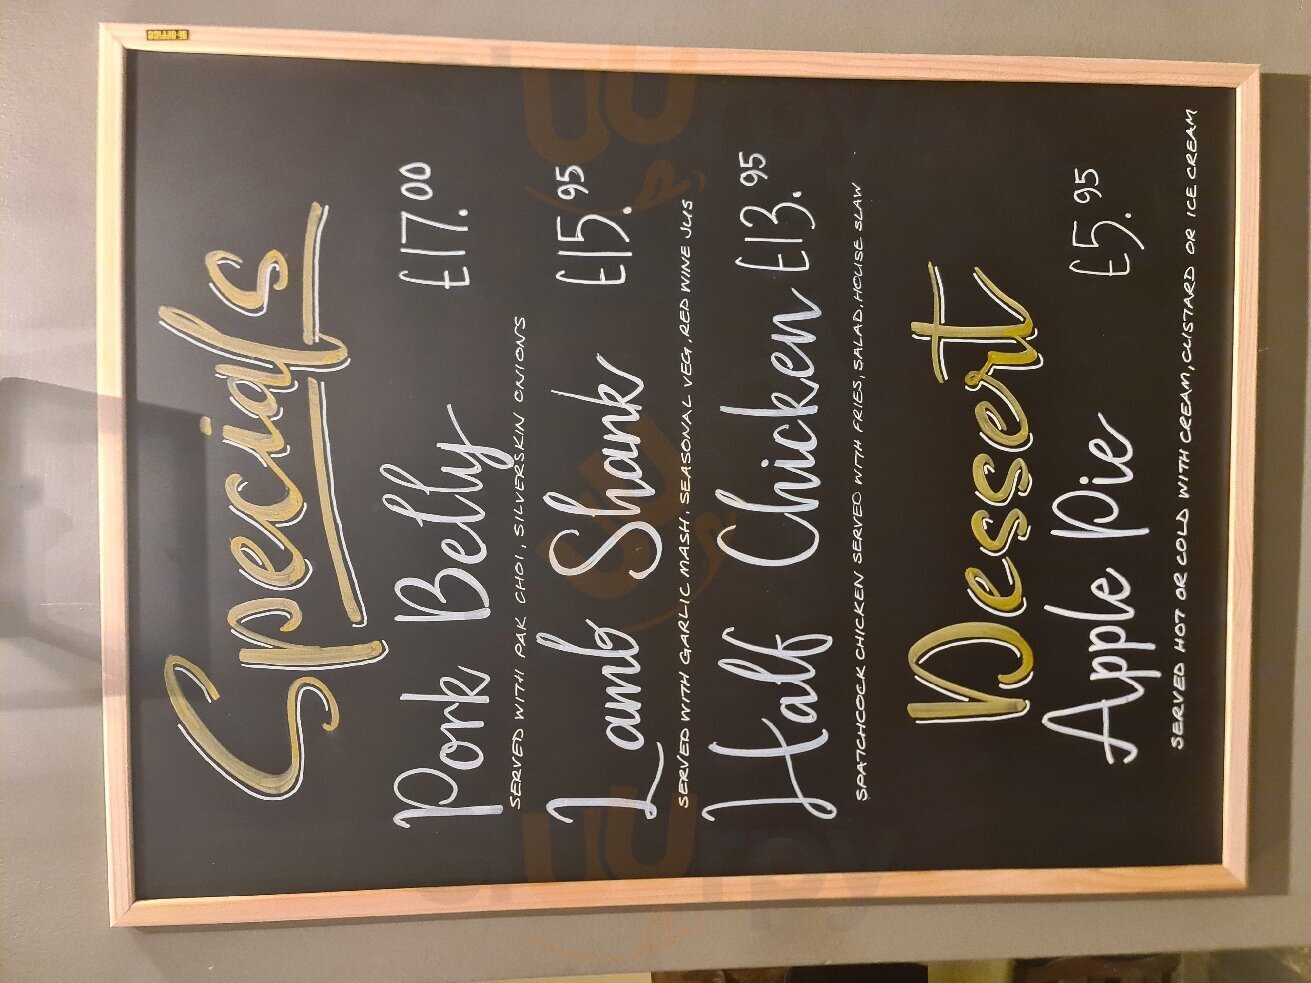 Specials
Pork Belly £17.00
SERVED WITH PAK CHOI, SILVERSKIN ONIONS
Lamb Shank £15.95
SERVED WITH GARLIC MASH, SEASONAL VEG, RED WINE JUS
Half Chicken £13.95
SPATCHCOCK CHICKEN SERVED WITH FRIES, SALAD, HOUSE SLAW
Dessert
Apple Pie £5.95
SERVED HOT OR COLD WITH CREAM, CUSTARD OR ICE CREAM